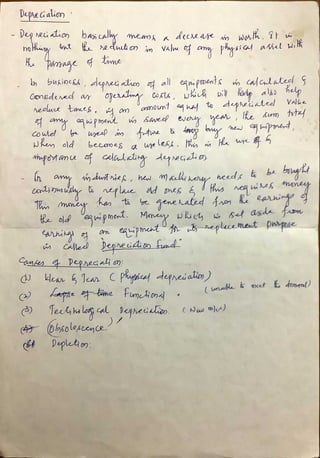 Depreciation
- Depreciation basically means a decrease in worth. It is
nothing but the reduction in value of any physical asset with
the passage of time
- In business, depreciation of all equipments is calculated &
considered as operating costs, which will help also help
reduce taxes, if an amount equal to depreciated value
of any equipment is saved every year, the sum total
could be used in future to buy new equipment,
when old becomes useless. This is the use of &
importance of calculating depreciation
- In any industries, new machinery needs to be bought
continuously to replace old ones & this requires money
This money has to be generated from the earning of
the old equipment. Money which is set aside from
earning of an equipment for its replacement purpose
is called "Depreciation Fund"
Causes of Depreciation:
(1) Wear & Tear (physical depreciation)
(2) Lapse of time Functional . (unable to meet the demand)
(3) Technological Depreciation (New m/c)
(4) Obsolescence
Depletion: